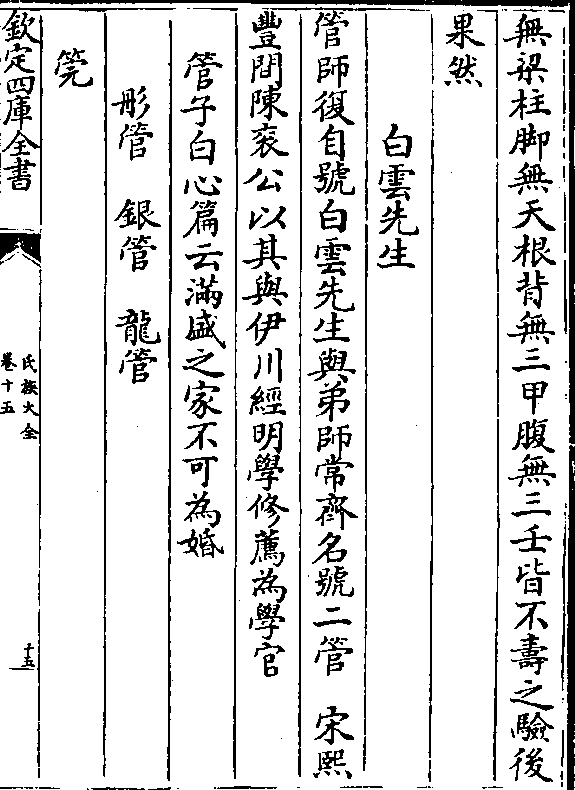 無梁柱脚無天根背無三甲腹無三壬皆不壽之驗後
果然
白雲先生
管師復自號白雲先生與弟師常齊名號二管　宋熙
豐間陳襄公以其與伊川經明學修薦為學官
管子白心篇云滿盛之家不可為婚
彤管　銀管　龍管
筦
欽定四庫全書
氏族大全
卷十五
十五